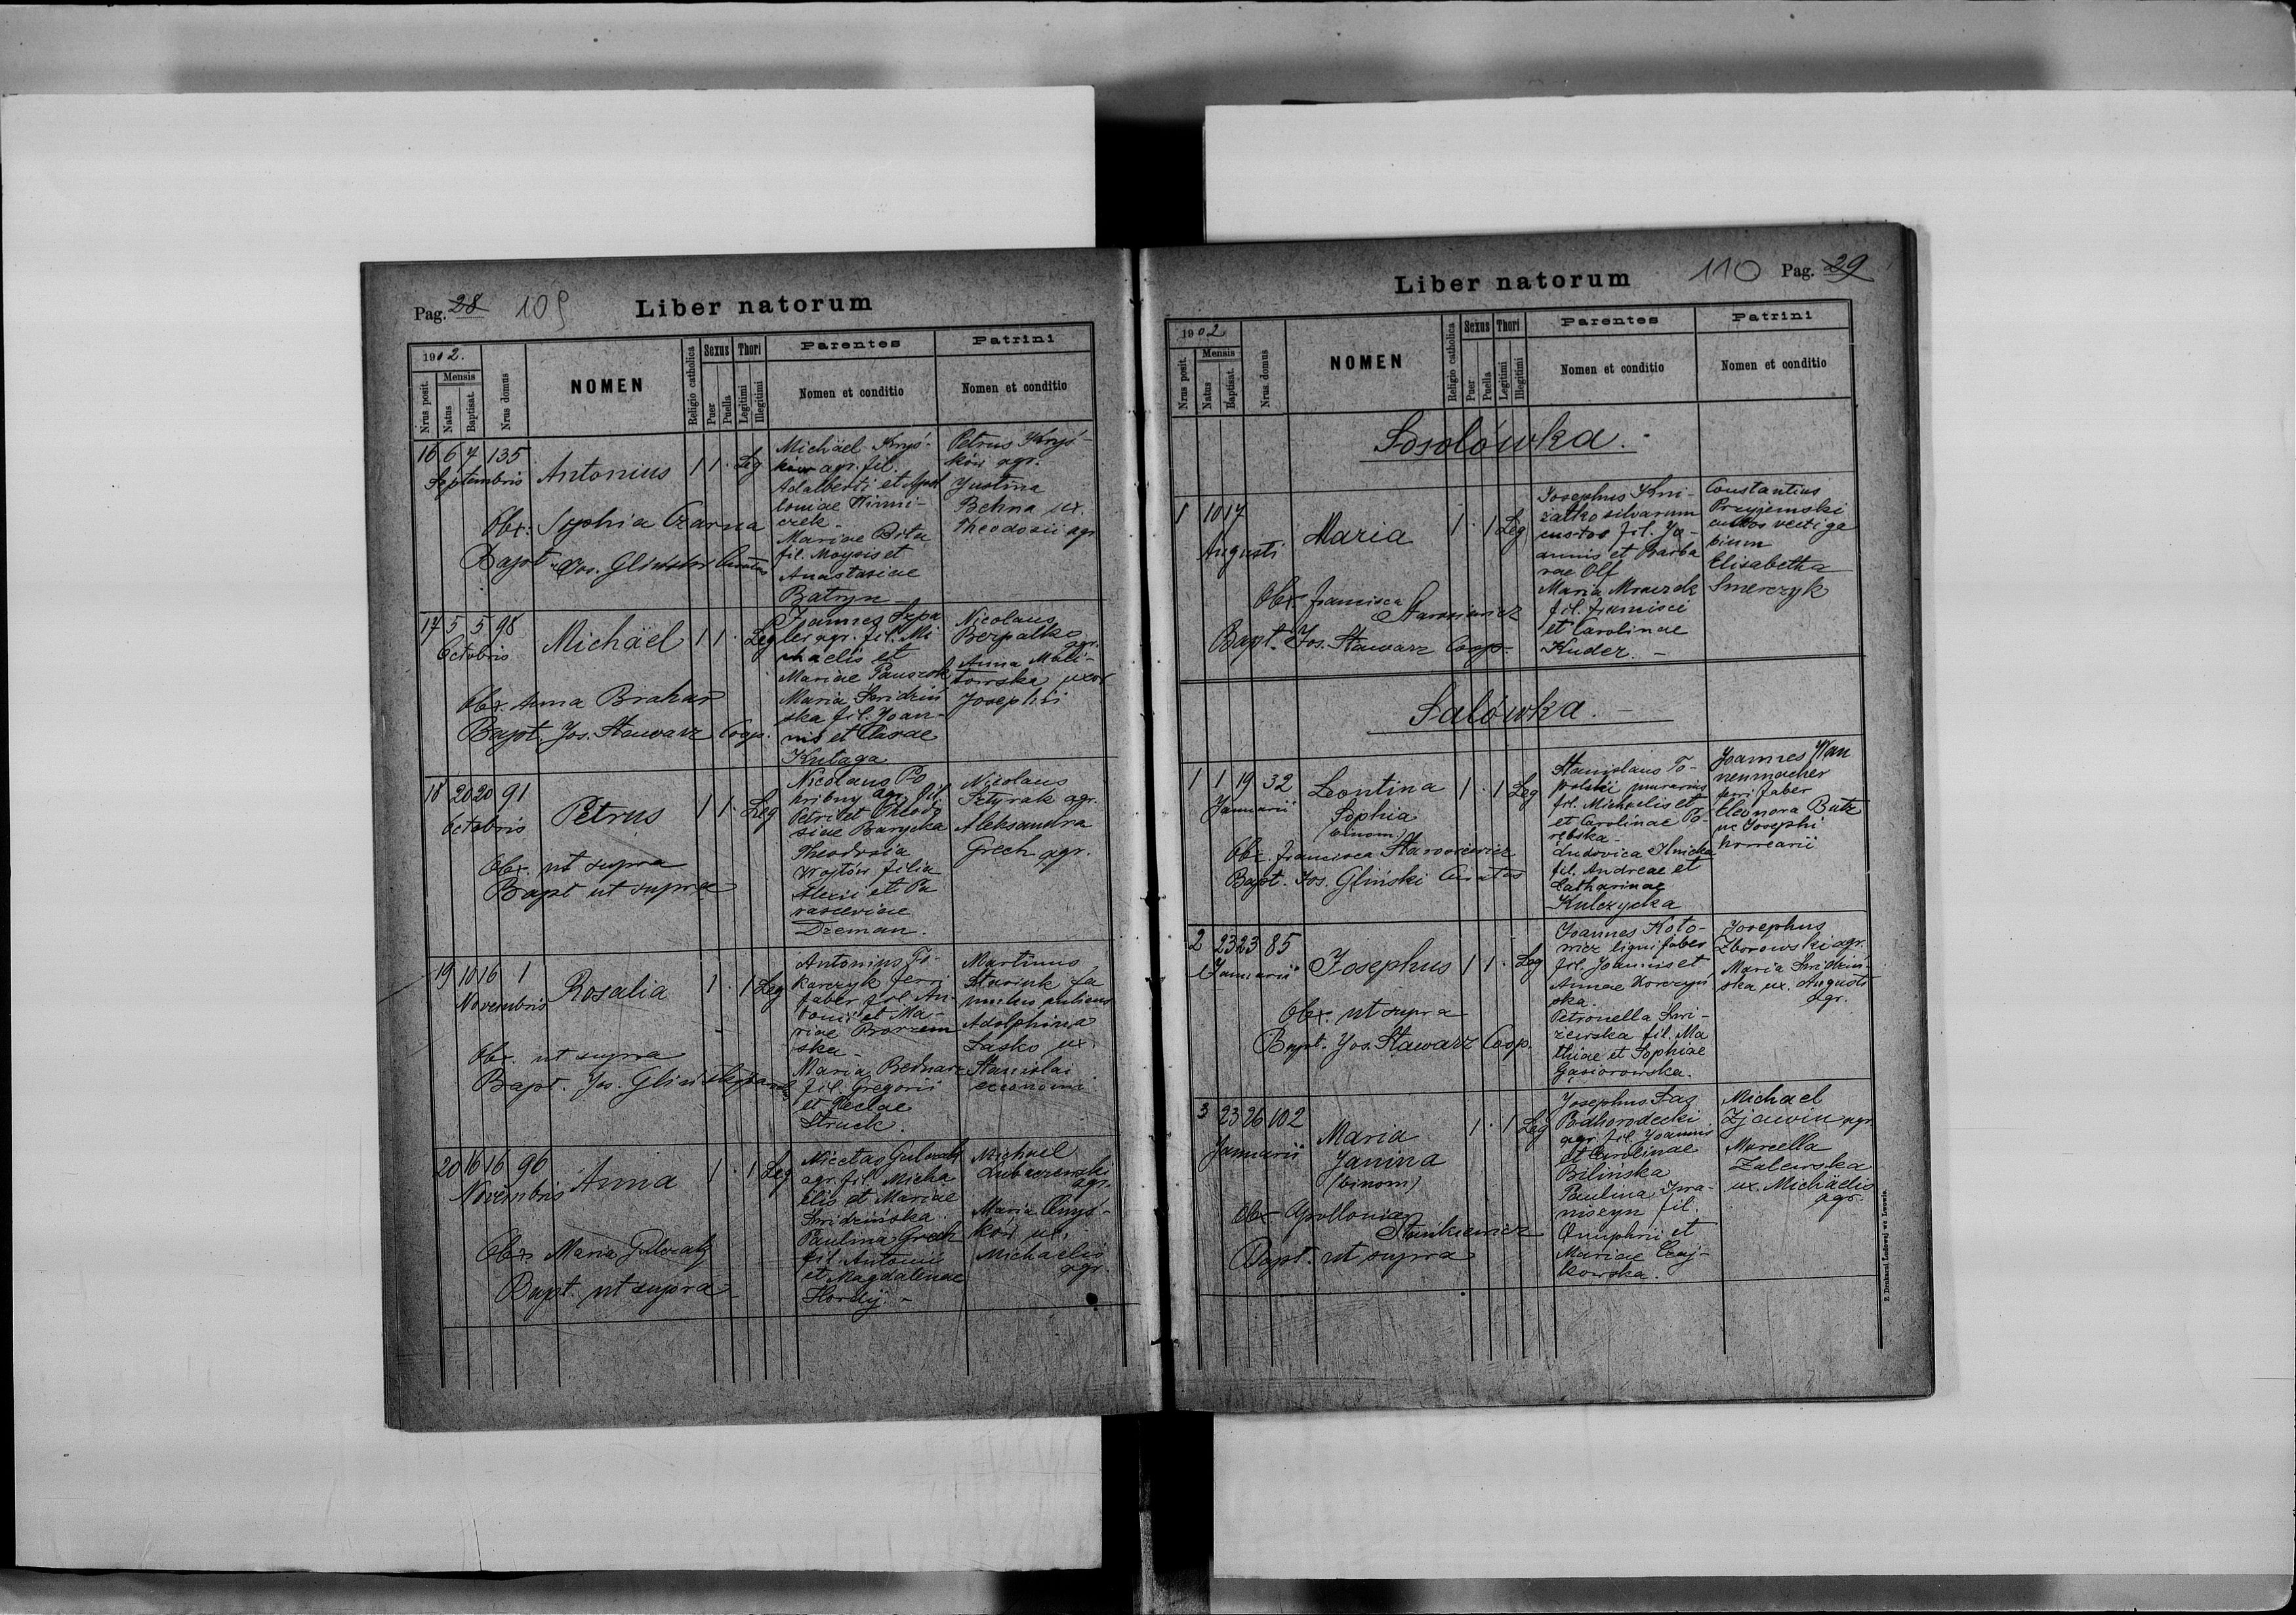 Pag. 28 109 Liber natorum
1902.
Nrus posit.
Mensis
Natus
Baptisat.
Nrus domus
NOMEN
Religio catholica
Sexus
Puer
Puella
Thori
Legitimi
Illegitimi
Parentes
Nomen et conditio
Patrini
Nomen et conditio
16 6 7 135
Septembris
Antonius
1 1 · Leg
Obx. Sophia Czarna
Bapt. Jos. Gliński Curatus
Michäel Kryś-
ków agr. fil.
Adalberti et Apol
loniae Winni-
czek -
Mariae
fil. Moysis et
Anastasiae
Batryn -
Petrus Kryś-
ków agr.
Justina
Behna ux.
Theodosii agr
17 5 5 98
Octobris
Michäel
1 1 · Leg
Obx. Anna Brahar
Bapt. Jos. Stawarz Coop.
Joannes Szpa
ler agr. fil. Mi
chaelis et
Mariae
Maria Swidziń
ska fil. Joan-
nis et Clarae
Kulaga
Nicolaus
Berpalko
agr.
Anna Mali-
towska uxor
Josephi
18 20 20 91
Octobris
Petrus
1 1 · Leg
Obx. ut supra
Bapt ut supra
Nicolaus Po
hribny agr. fil
Petri et Theod
siae Barycka
Theodosia
Wojtów filia
Alexii et Pa
rasceviae
Dreman.
Nicolaus
Sztyrak agr.
Aleksandra
Grech agr.
19 10 16 1
Novembris
Rosalia
1 · 1 Leg
Obx. ut supra
Bapt. Jos. Gliński
Antonius To-
karczyk ferri
faber fil. An-
tonii et Ma-
riae Borzem
ska -
Maria Bednarz
fil. Gregorii
et Teclae
Struck.
Martinus
Stasiuk fa
mulus
Adolphina
Lasko ux.
Stanislai
economi
20 16 16 96
Novembris
Anna
1 · 1 Leg
Obx. Maria
Bapt. ut supra
Nicetas
agr. fil. Micha
elis et Mariae
Swidzińska
Paulina Grech
fil. Antonii
et Magdalenae
Hordij. -
Michael
Lubaczewski
agr.
Maria Kryś-
ków ux.
Michaelis
agr.
Liber natorum 110 Pag. 29
1902
Nrus posit.
Mensis
Natus
Baptisat.
Nrus domus
NOMEN
Religio catholica
Sexus
Puer
Puella
Thori
Legitimi
Illegitimi
Parentes
Nomen et conditio
Patrini
Nomen et conditio
Sosolówka.
1 10 17
Augusti
Maria
1 · 1 Leg
Obx. Francisca
Starosiewicz
Bapt. Jos. Stawarz Coop.
Josephus Kni-
zatko silvarum
custos fil. Jo-
annis et Barba
rae Olf
Maria Mrozek
fil. Francisci
et Carolinae
Kuder. -
Constantius
Przyjemski
custos vectiga
lium
Elisabetha
Smerczyk
Salówka. -
1 1 19 32
Januarii
Leontina
Sophia
(binom)
1 · 1 Leg
Obx. Francisca Starosiewicz
Bapt. Jos. Gliński Curatus
Stanislaus To-
polski murarius
fil. Michaelis et
et Carolinae Po-
rębska -
Ludovica Ilnicka
fil. Andreae et
Catharinae
Kulczycka
Joannes Wan
nenmacher
ferri faber
Eleonora Butz
ux Josephi
horrearii
2 23 23 85
Januarii
Josephus
1 1 · Leg
Obx. ut supra
Bapt. Jos. Stawarz Coop.
Joannes Koto-
wicz ligni faber
fil. Joannis et
Annae Korczyń
ska.
Petronella Swi-
żewska fil. Ma
thiae et Sophiae
Gąsiorowska.
Josephus
Zborowski agr.
Maria Swidziń-
ska ux. Augusti
agr.
3 23 26 102
Januarii
Maria
Janina
(binom)
1 · 1 Leg
Obx Apollonia
Stankiewicz
Bapt. ut supra
Josephus Sas
Podhorodecki
agr. fil. Joannis
et Carolinae
Bilińska
Paulina Iwa-
niszyn fil.
Onuphrii et
Mariae Czaj-
kowska.
Michael
Zjawin agr.
Marcella
Zalewska
ux. Michäelis
agr.
Z Drukarni Ludowej we Lwowie.